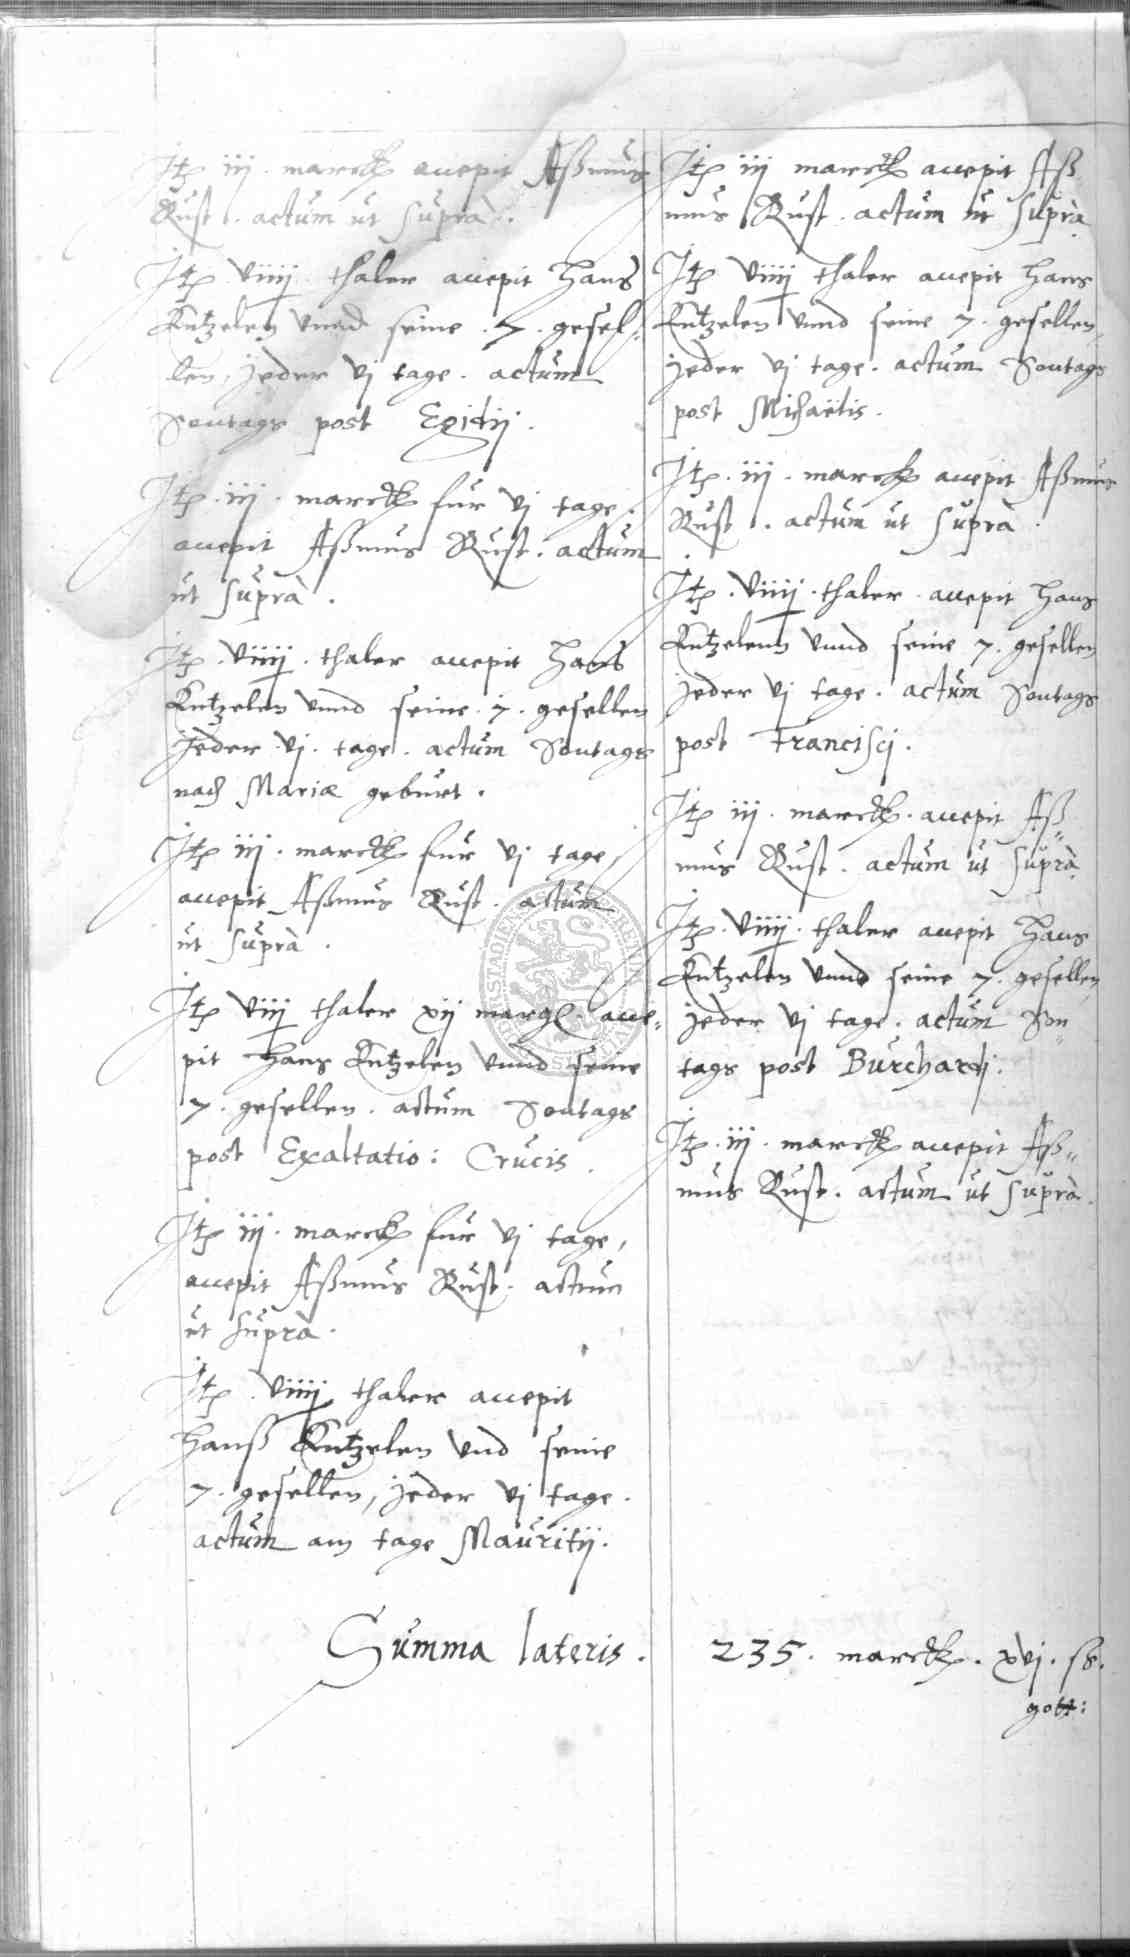 Jt͠ iij . marck accepit Aßmus
Rust . actum ut suprà .
Jt͠ viiij thaler accepit Hans
Kutzelen vnnd seine . 7 . gesel-
len, jeder vj tage . actum
Sontags post Egidij .
Jt͠ . iij . marck für vj tage,
accepit Aßmus Rust . actum
ut suprà .
Jt͠ . viiij . thaler accepit Hans
Kutzelen vnnd seine . 7 . gesellen
jeder . vj . tage . actum Sontags
nach Mariæ geburt .
Jt͠ iij . marck für vj tage,
accepit Aßmus Rust . actum
ut suprà .
Jt͠ viij thaler xij margl. acce-
pit Hans Kutzelen vnnd seine
7 . gesellen . actum Sontags
post Exaltatio: Crucis .
Jt͠ iij . marck für vj tage,
accepit Aßmus Rust . actum
ut suprà .
Jt͠ . viiij thaler accepit
Hanß Kutzelen vnd seine
7 . gesellen, jeder vj tage .
actum am tage Mauritij .
Jt͠ iij marck accepit Aß
mus Rust . actum ut suprà
Jt͠ viiij thaler accepit Hans
Kutzelen vnnd seine 7 . gesellen,
jeder vj tage . actum Sontags
post Michaëlis .
Jt͠ . iij . marck accepit Aßmus
Rust . actum ut suprà .
Jt͠ . viiij . thaler . accepit Hans
Kutzelenn vnnd seine 7 . gesellen
jeder vj tage . actum Sontags
post Francisci .
Jt͠ iij . marck . accepit Aß-
mus Rust . actum ut suprà
Jt͠ . viiij . thaler accepit Hans
Kutzelen vnnd seine 7 . gesellen,
jeder vj tage . actum Son-
tags post Burchardj .
Jt͠ . iij . marck accepit Aß-
mus Rust . actum ut suprà .
Summa lateris . 235 . marck . xvj . ß .
gott: